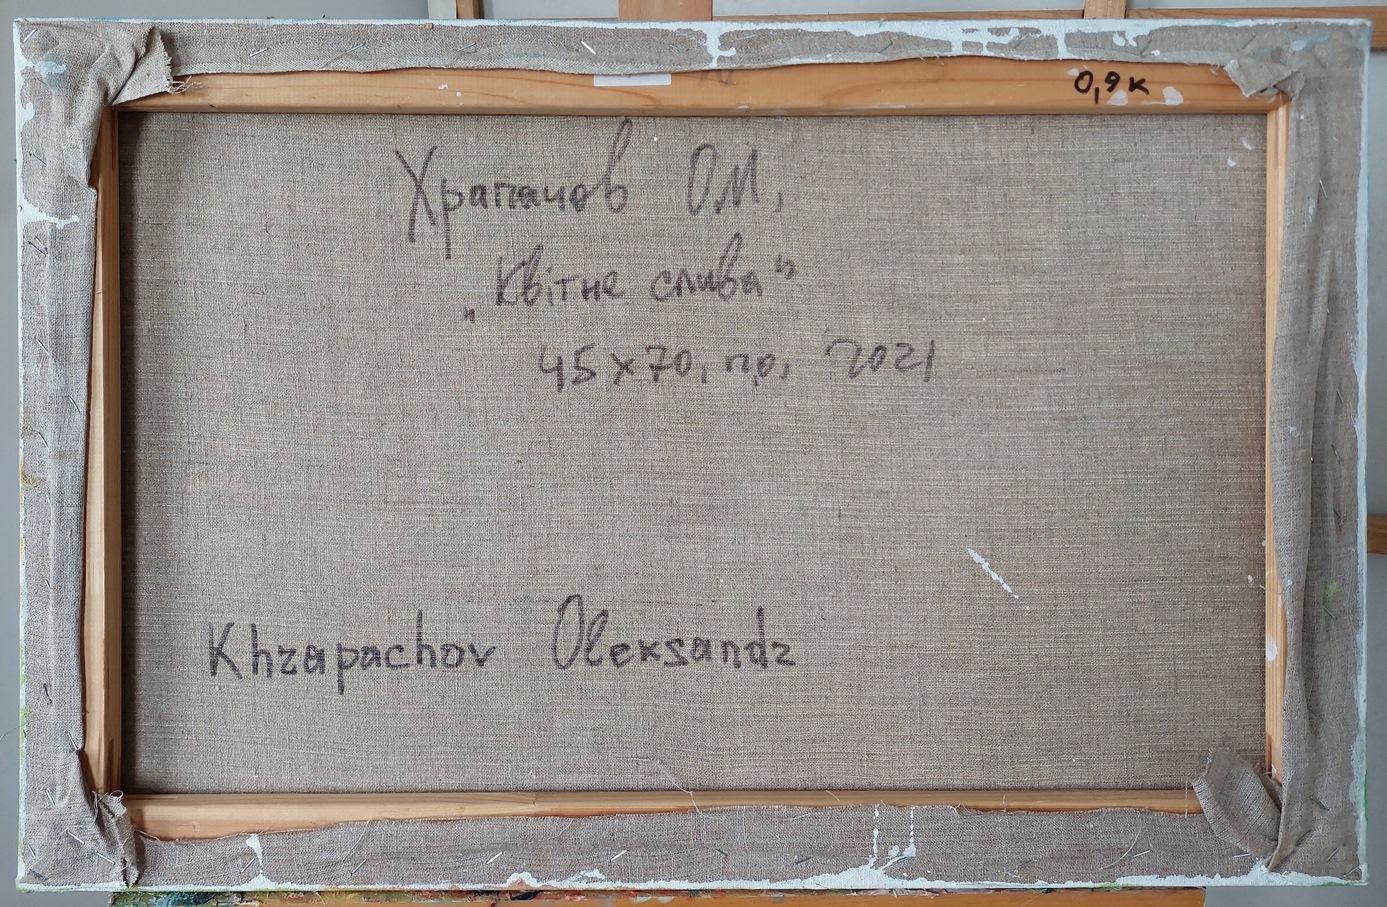 0,9к
Храпачов О.М,
„Квітне слива"
45х70, п,о, 2021
Khrapachov Oleksandr